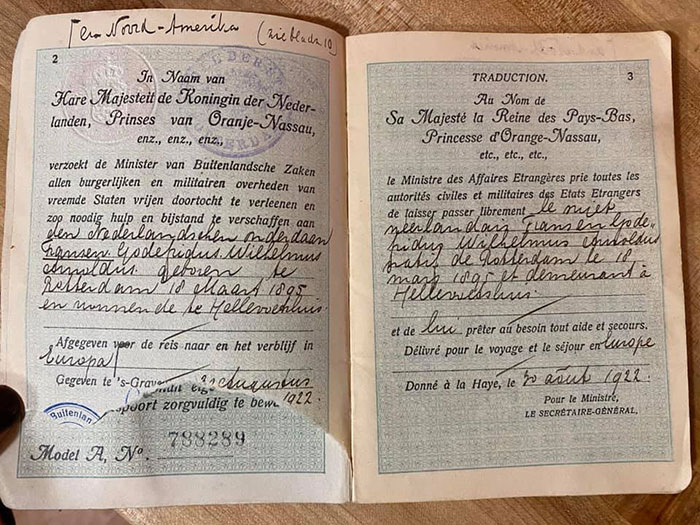 en Noord-Amerika (zie bladz. 10)
2
In Naam van
Hare Majesteit de Koningin der Neder-
landen, Prinses van Oranje-Nassau,
enz., enz., enz.,
verzoekt de Minister van Buitenlandsche Zaken
allen burgerlijken en militairen overheden van
vreemde Staten vrijen doortocht te verleenen en
zoo noodig hulp en bijstand te verschaffen aan
den Nederlandschen onderdaan
Fransen Godefridus Wilhelmus
Arnoldus geboren te
Rotterdam 18 Maart 1895
en wonende te Hellevoetsluis
Afgegeven voor de reis naar en het verblijf in
Europa
Gegeven te 's-Grav 30 Augustus
1922.
Buitenlan
spoort zorgvuldig te bewa
Model A, No. 788289
TRADUCTION. 3
Au Nom de
Sa Majesté la Reine des Pays-Bas,
Princesse d'Orange-Nassau,
etc., etc., etc.,
le Ministre des Affaires Etrangères prie toutes les
autorités civiles et militaires des Etats Etrangers
de laisser passer librement le sujet
neerlandais Fransen Gode-
fridus Wilhelmus Arnoldus
natif de Rotterdam le 18
mars 1895 et demeurant à
Hellevoetsluis.
et de lui prêter au besoin tout aide et secours.
Délivré pour le voyage et le séjour en Europe
Donné à la Haye, le 30 août 1922.
Pour le Ministre,
LE SECRÉTAIRE-GÉNÉRAL,